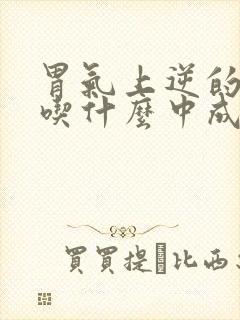 胃氣上逆的
喫什麽中成
買買提比西